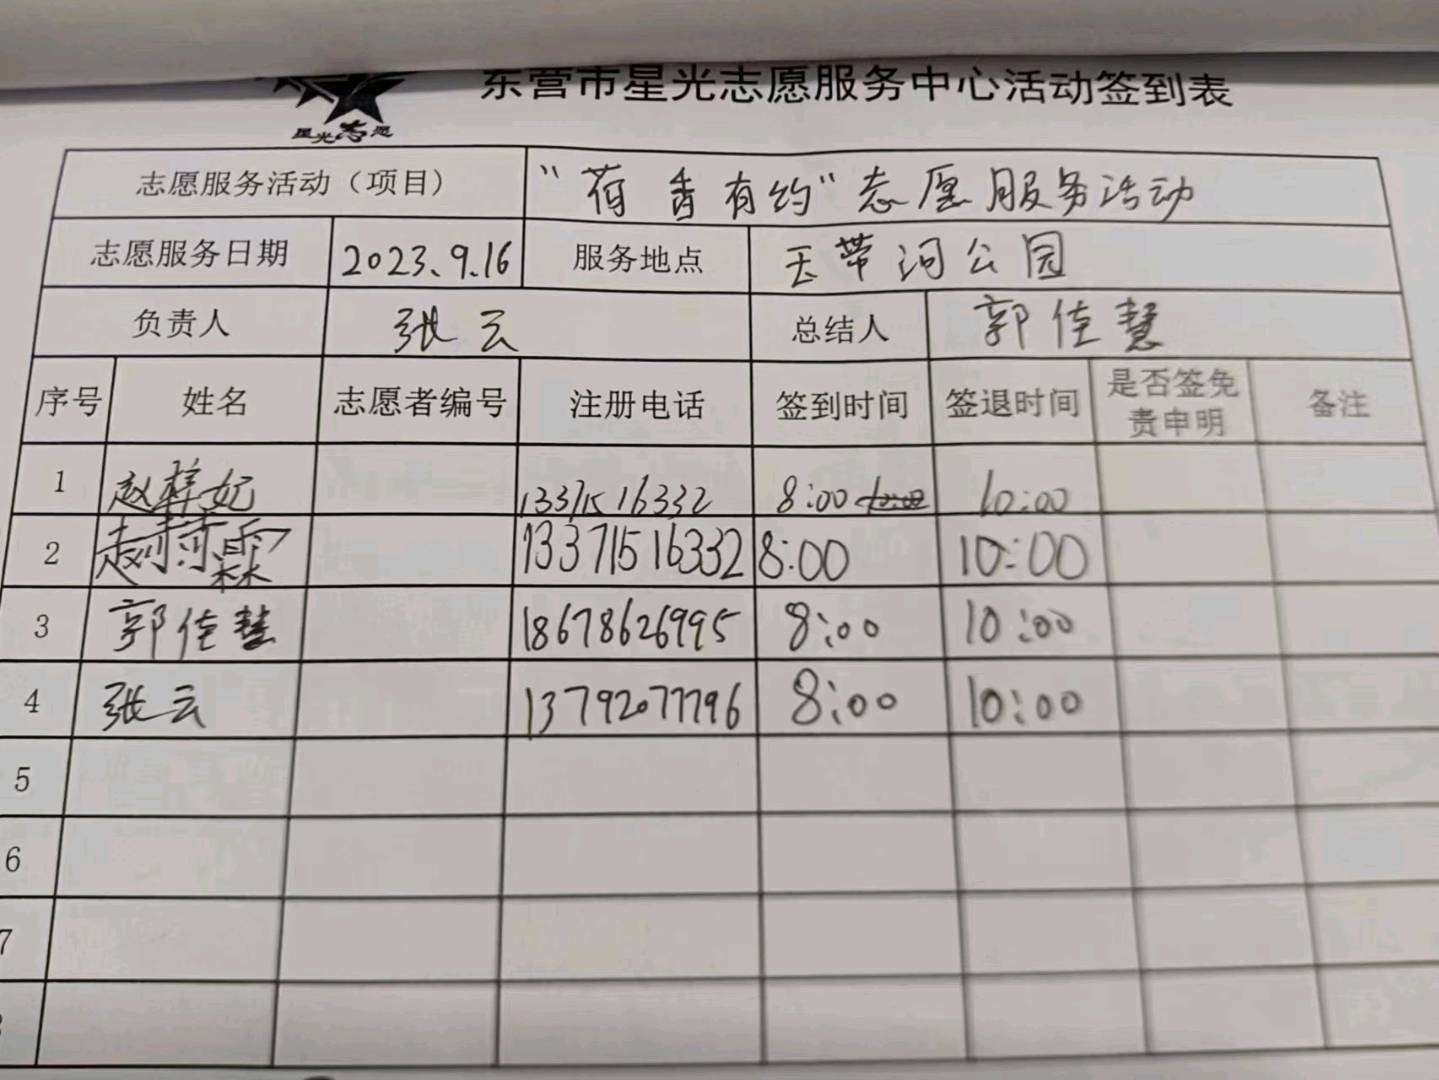 东营市星光志愿服务中心活动签到表
星光志愿
志愿服务活动（项目） “荷香有约”志愿服务活动
志愿服务日期 2023.9.16 服务地点 玉带河公园
负责人 张云 总结人 郭佳慧
序号 姓名 志愿者编号 注册电话 签到时间 签退时间 是否签免责申明 备注
1 赵梓妃 13371516332 8:00 10:00
2 赵 霖 13371516332 8:00 10:00
3 郭佳慧 18678626995 8:00 10:00
4 张云 13792077796 8:00 10:00
5
6
7